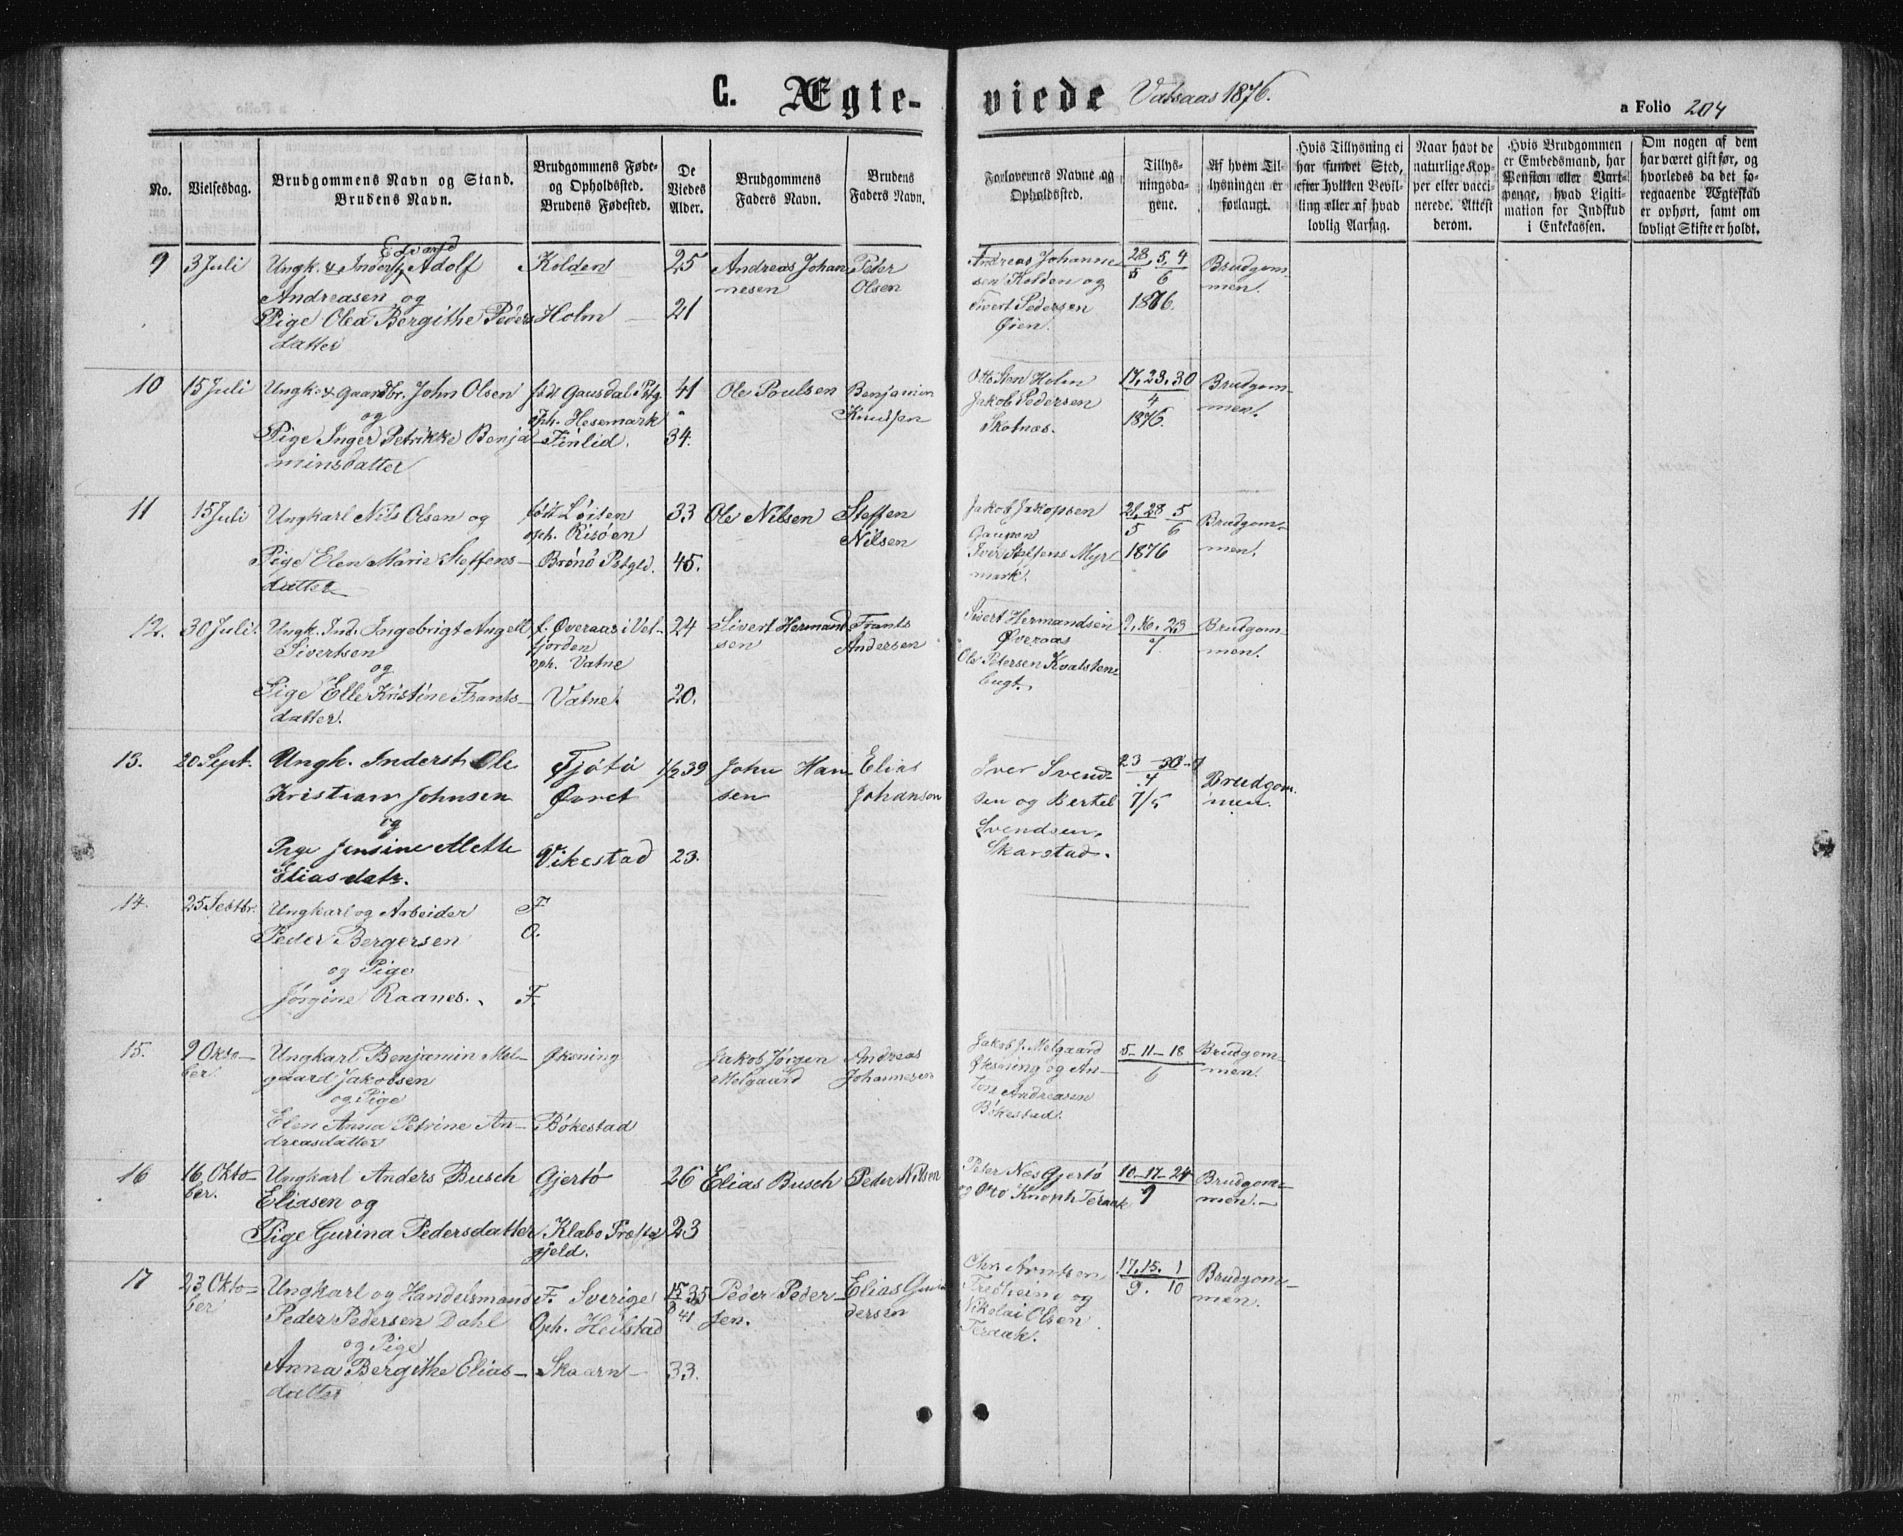 C. Ægte-
viede Vatsaas 1876.
a Folio 204
No.
Vielsesdag.
Brudgommens Navn og Stand.
Brudens Navn.
Brudgommens Føde-
og Opholdssted.
Brudens Fødested.
De
Viedes
Alder.
Brudgommens
Faders Navn.
Brudens
Faders Navn.
Forlovernes Navne og
Opholdssted.
Tillys-
ningsda-
gene.
Af hvem Til-
lysningen er
forlangt.
Hvis Tillysning ei
har fundet Sted,
efter hvilken Bevil-
ling eller af hvad
lovlig Aarsag.
Naar havt de
naturlige Kop-
per eller vacci-
nerede. Attest
derom.
Hvis Brudgommen
er Embedsmand, har
Pension eller Vart-
penge, hvad Ligiti-
mation for Indskud
i Enkekassen.
Om nogen af dem
har været gift før, og
hvorledes da det fo-
regaaende Ægteskab
er ophørt, samt om
lovligt Skifte er holdt.
9 3 Juli
Edvard
Ungk. & Inderst Adolf
Andreasen og
Pige Olea Bergithe Peders
datter
Kolden
Holm
25
21
Andreas Johan
nesen
Peter
Olsen
Andreas Johanne
sen Kolden og
Sivert Pedersen
Øien.
28, 5, 4
5 6
1876.
Brudgom-
men.
10 15 Juli
Ungk. & Gaardbr. John Olsen
og
Pige Inger Petrikke Benja
minsdatter
født Gausdal Pstg
Oph. Hesemark
Tinlid.
41
34.
Ole Poulsen
Benjamin
Knudsen
Otto Sten Holm
Jakob Pedersen
Skotnæs.
17, 23, 30
4
1876.
Brudgom-
men.
11 15 Juli
Ungkarl Nils Olsen og
Pige Elen Marie Steffens-
datter
født Løiten
oph. Risøen
Brønø Pstgld.
33
45.
Ole Nilsen
Steffen
Nilsen
Jakob Jakopsen
Gaupen
Iver Steffens Myr-
mark.
21, 28 5
5 6
1876
Brudgom-
men.
12. 30 Juli.
Ungk. Ind. Ingebrigt Angell
Sivertsen
og
Pige Elle Kristine Frants-
datter.
f. Øveraas i Vel-
fjorden
oph. Vatne
Vatne
24
20.
Sivert Hermand
sen
Frants
Andersen
Sivert Hermandsen
Øveraas
Ole Petersen Kvalstens
bugt.
9, 16, 23
7.
Brudgom-
men.
13. 20 Sept.
Ungk. Inderst Ole
Kristian Johnsen
og
Pige Jensine Alette
Eliasdatr.
Tjøtø
Øvret
Vikestad
1/2 39
23.
John Han-
sen
Elias
Johanson
Iver Svend-
sen og Bertel
Svendsen,
Skarstad.
23 - 30
4
7/5
Brudgom-
men.
14. 25 Septbr.
Ungkarl og Arbeider
Peder Bergersen
og Pige
Jørgine Raanes.
F.
O.
F.
15. 9 Okto-
ber.
Ungkarl Benjamin Mel-
gaard Jakobsen
og Pige
Elen Anna Petrine An-
dreasdatter
Øksning
Bökestad
Jakob Jørgen
Melgaard
Andreas
Johannesen
Jakob J. Melgaard
Øksning og An-
ton Andreasen
Bökestad.
5-11-18
6
Brudgom-
men.
16 16 Okto-
ber.
Ungkarl Anders Busch
Eliasen og
Pige Gurina Pedersdatter
Gjertø
Klabo Præste
gjeld.
26
23
Elias Busch
Peder Nilsen
Peter Næs Gjertø
og Otto Knoph Teraak
10-17-24
9
Brudgom-
men.-
17 23 Okto-
ber
Ungkarl og Handelsmand
Peder Pedersen Dahl
og Pige
Anna Bergithe Elias-
datter
F. Sverige
Oph. Heilstad
Skaarn
15 35
9 41
33.
Peder Peder-
sen.
Elias Gun
dersen
Chr. Arntsen
Fredheim og
Nikolai Olsen
Teraak.
17, 15. 1
9. 10
Brudgom-
men.